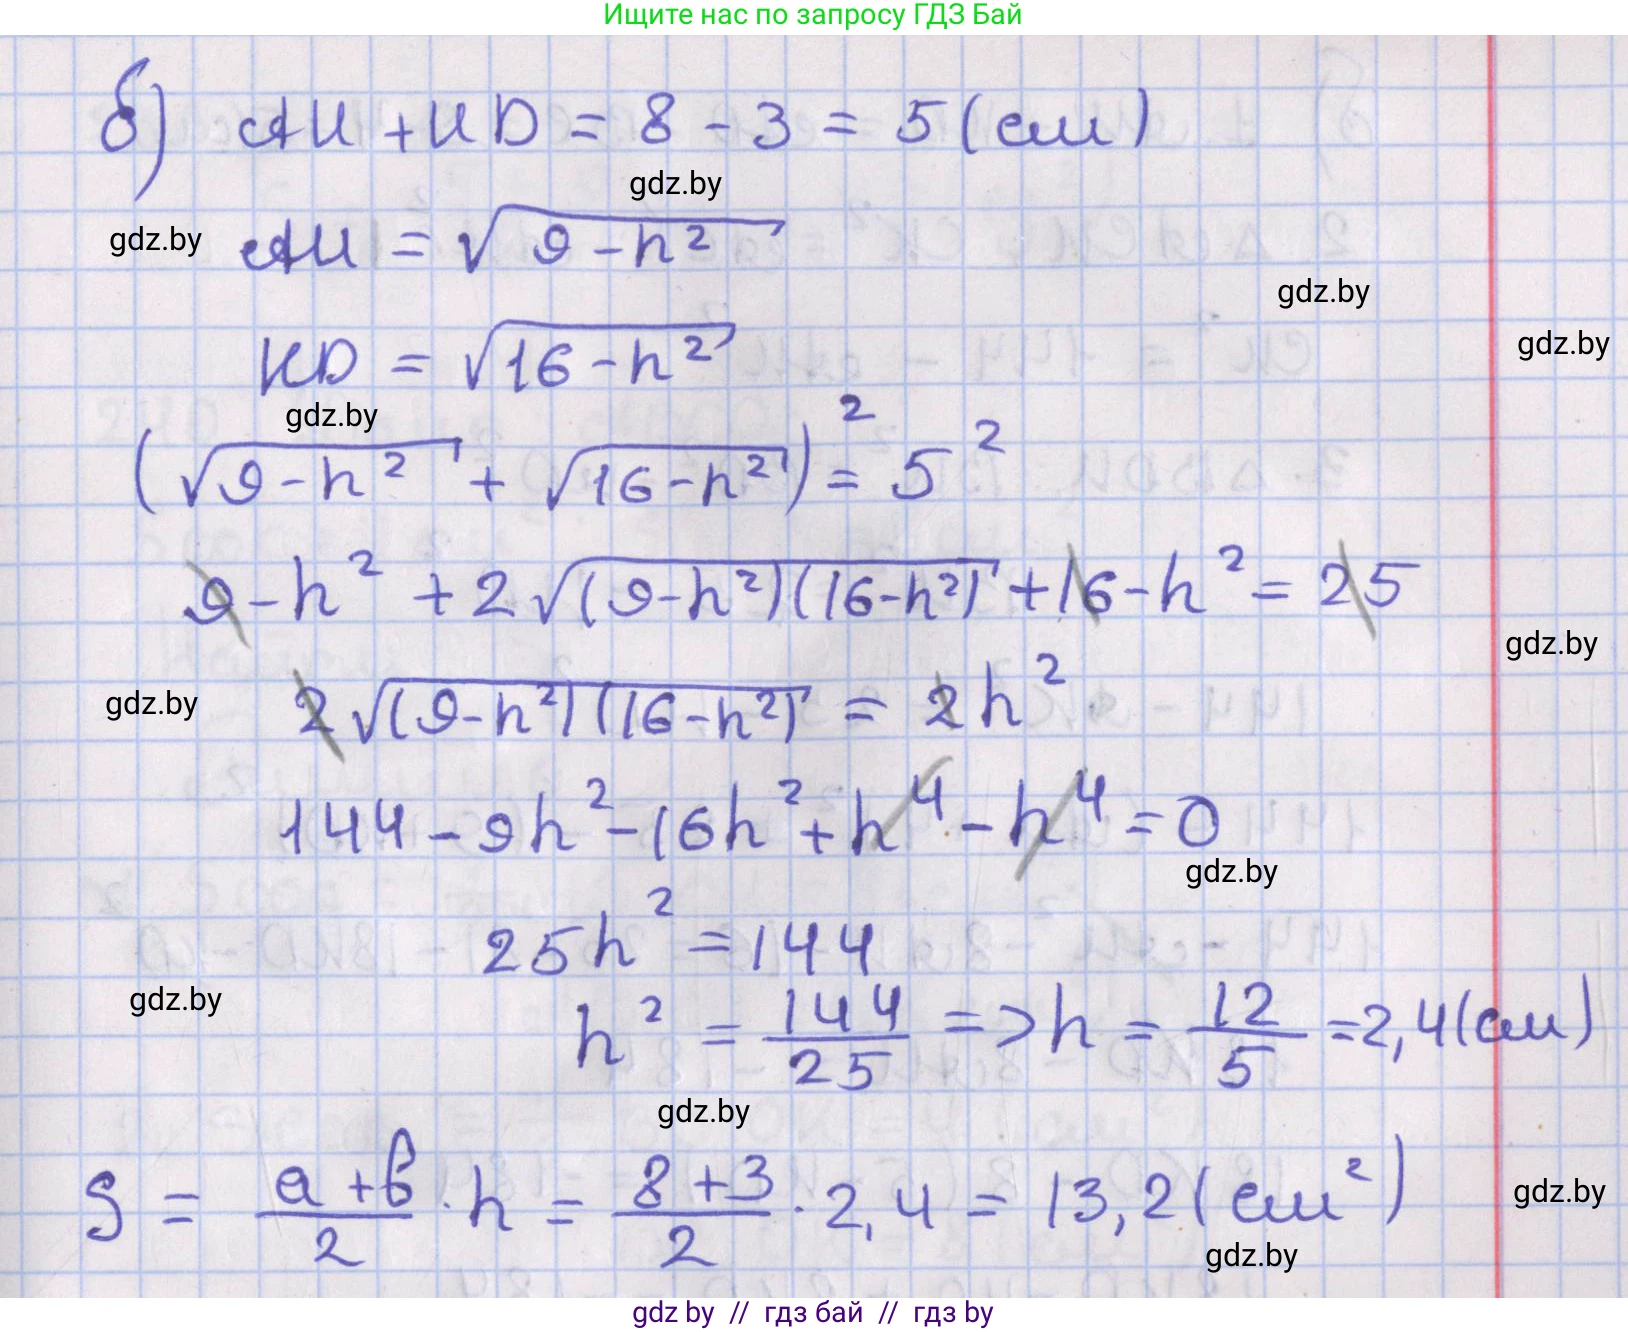 Ищите нас по запросу ГДЗ Бай
б) AH + HD = 8 - 3 = 5 (см)
gdz.by
gdz.by
AH = √(9 - h²)
gdz.by
gdz.by
HD = √(16 - h²)
gdz.by
(√(9 - h²) + √(16 - h²))² = 5²
9 - h² + 2√((9-h²)(16-h²)) + 16 - h² = 25
gdz.by
gdz.by
2√((9-h²)(16-h²)) = 2h²
144 - 9h² - 16h² + h⁴ - h⁴ = 0
gdz.by
25h² = 144
gdz.by
h² = 144/25 => h = 12/5 = 2,4 (см)
gdz.by
S = (a + b)/2 · h = (8 + 3)/2 · 2,4 = 13,2 (см²)
gdz.by
gdz.by
gdz by // гдз бай // гдз by